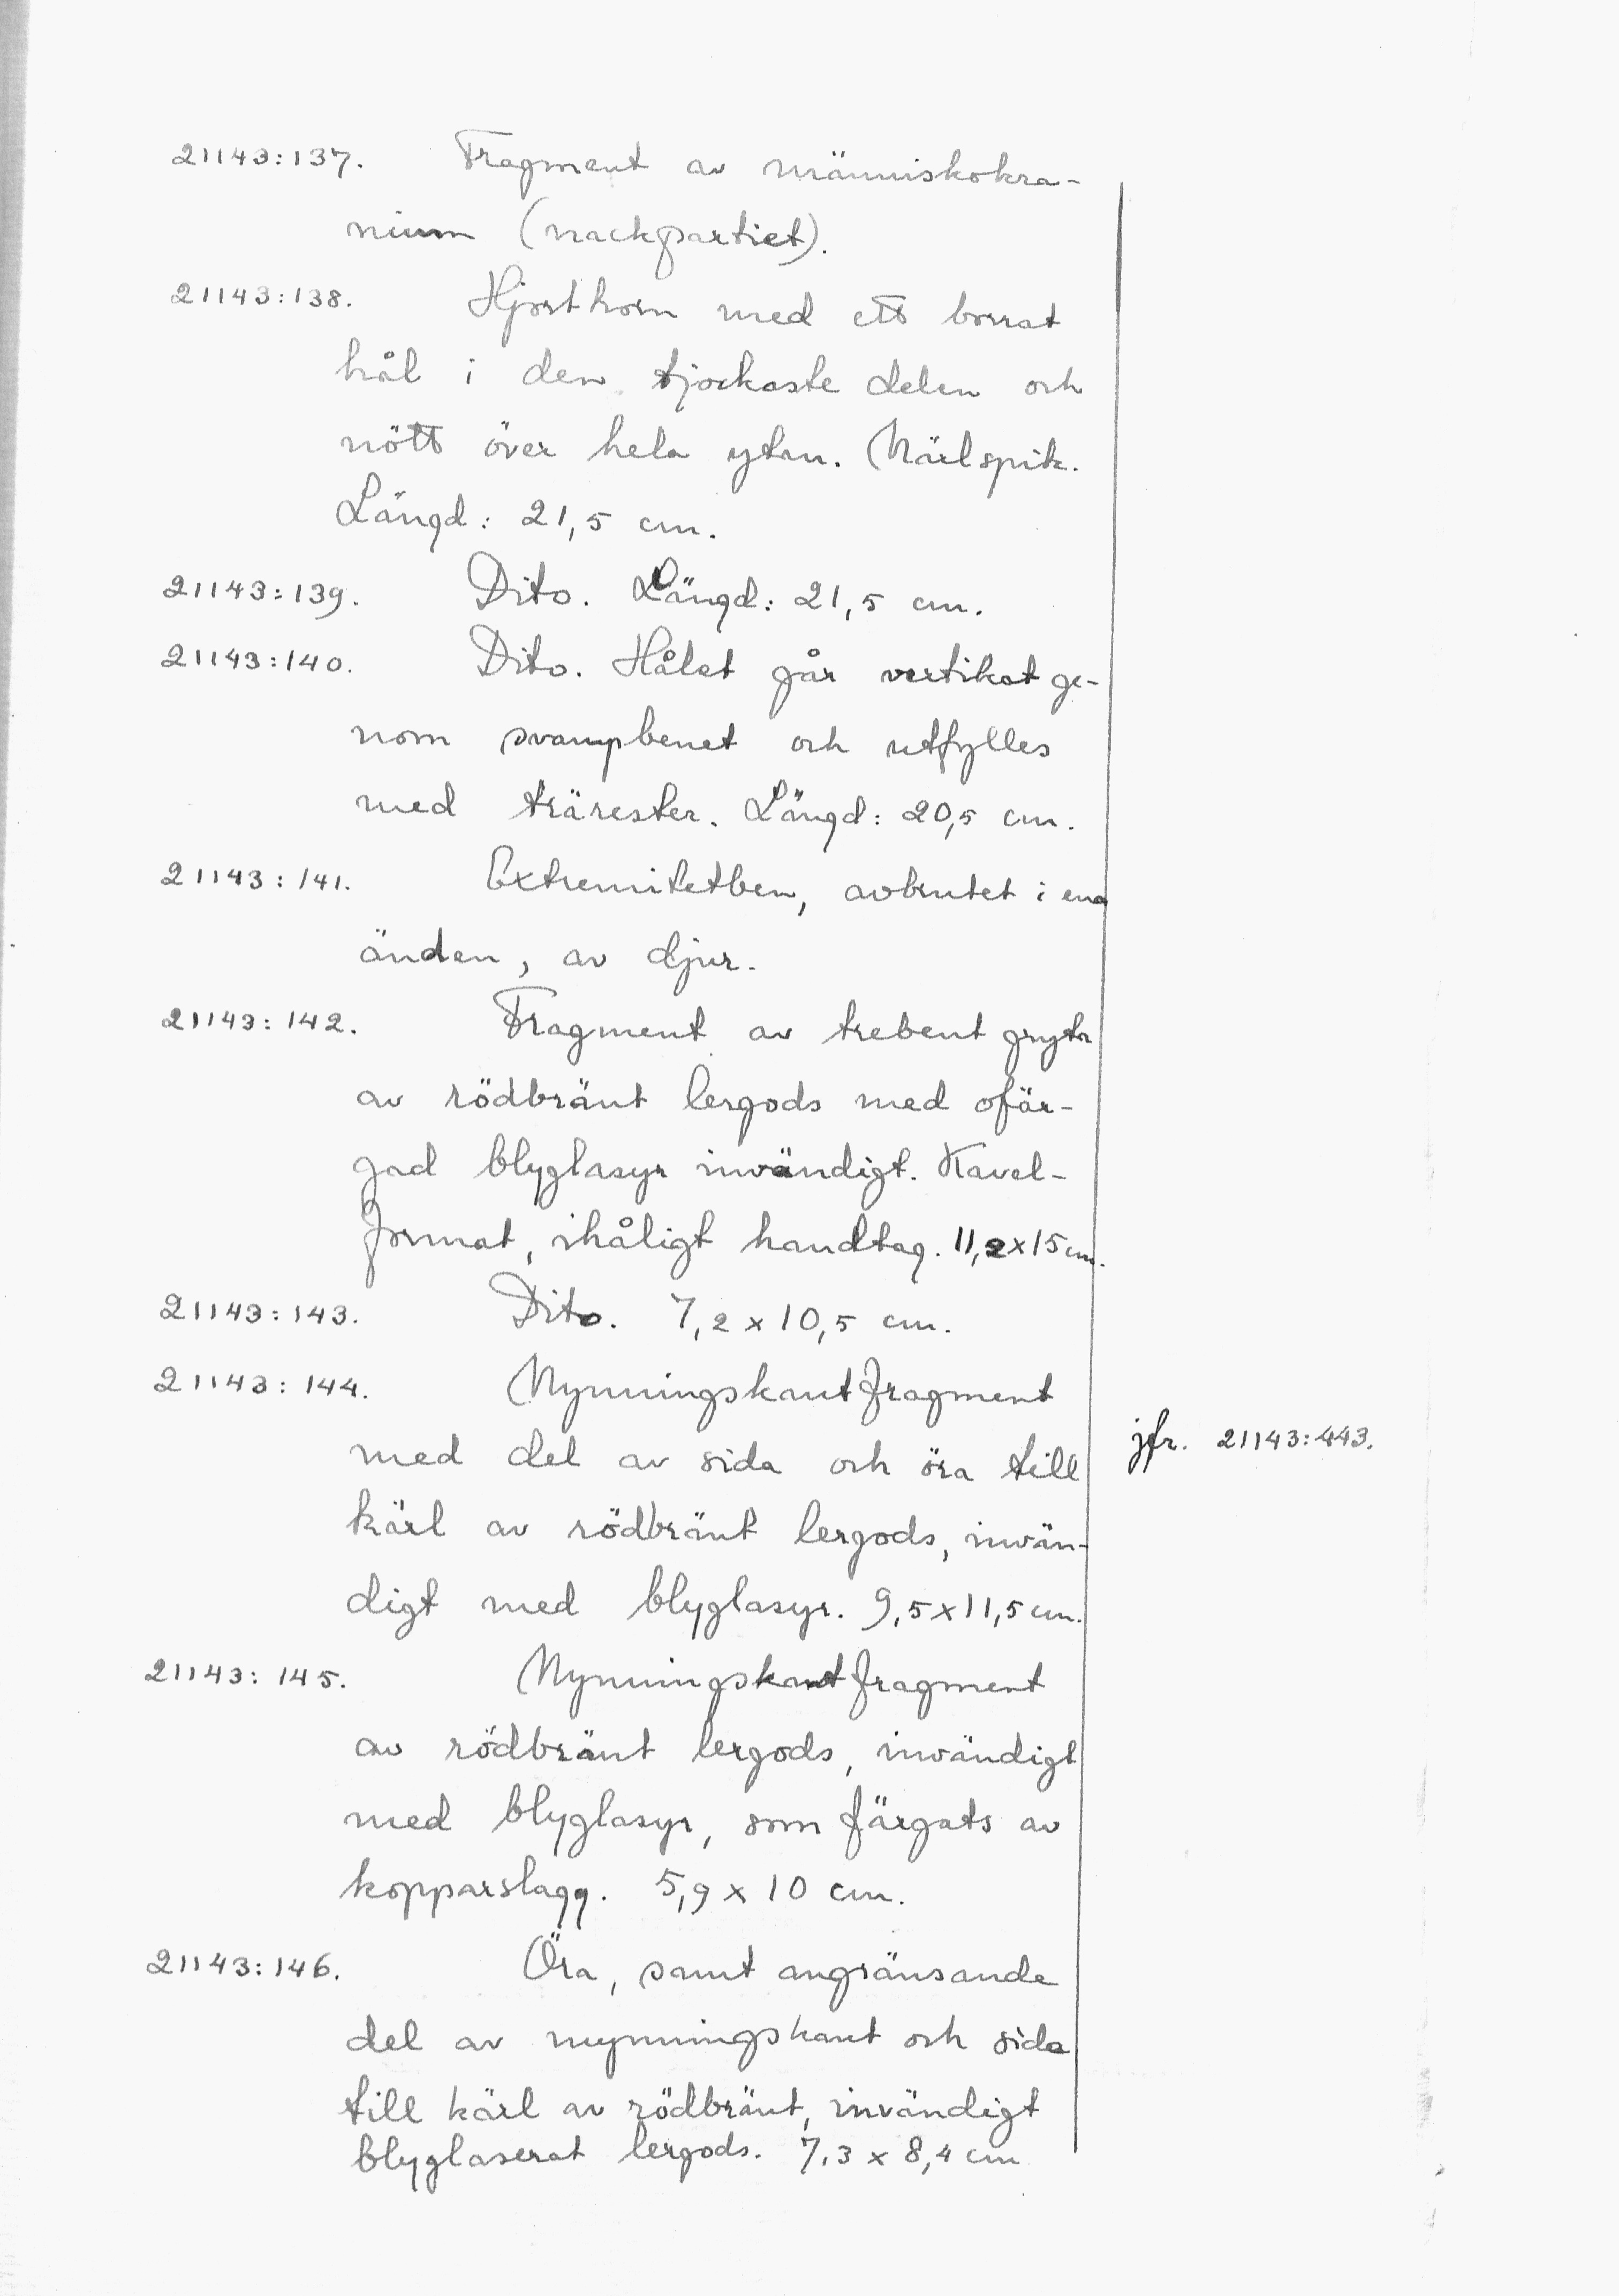 21143:137. Fragment av människokra-
nium (nackpartiet).
21143:138. Hjorthorn med ett borrat
hål i den tjockaste delen och
nött över hela ytan. Märlspik.
Längd: 21,5 cm.
21143:139. Dito. Längd: 21,5 cm.
21143:140. Dito. Hålet går vertikat ge-
nom svampbenet och utfylles
med trärester. Längd: 20,5 cm.
21143:141. Extremitetben, avbrutet i ena
änden, av djur.
21143:142. Fragment av trebent gryta
av rödbränt lergods med ofär-
gad blyglasyr invändigt. Kavel-
format, ihåligt handtag. 11,2x15 cm.
21143:143. Dito. 7,2 x 10,5 cm.
21143:144. Mynningskantfragment
med del av sida och öra till
jfr. 21143:443.
kärl av rödbränt lergods, invän-
digt med blyglasyr. 9,5x11,5 cm.
21143:145. Mynningskantfragment
av rödbränt lergods, invändigt
med blyglasyr, som färgats av
kopparslagg. 5,9 x 10 cm.
21143:146. Öra, samt angränsande
del av mynningskant och sida
till kärl av rödbränt, invändigt
blyglaserat lergods. 7,3 x 8,4 cm